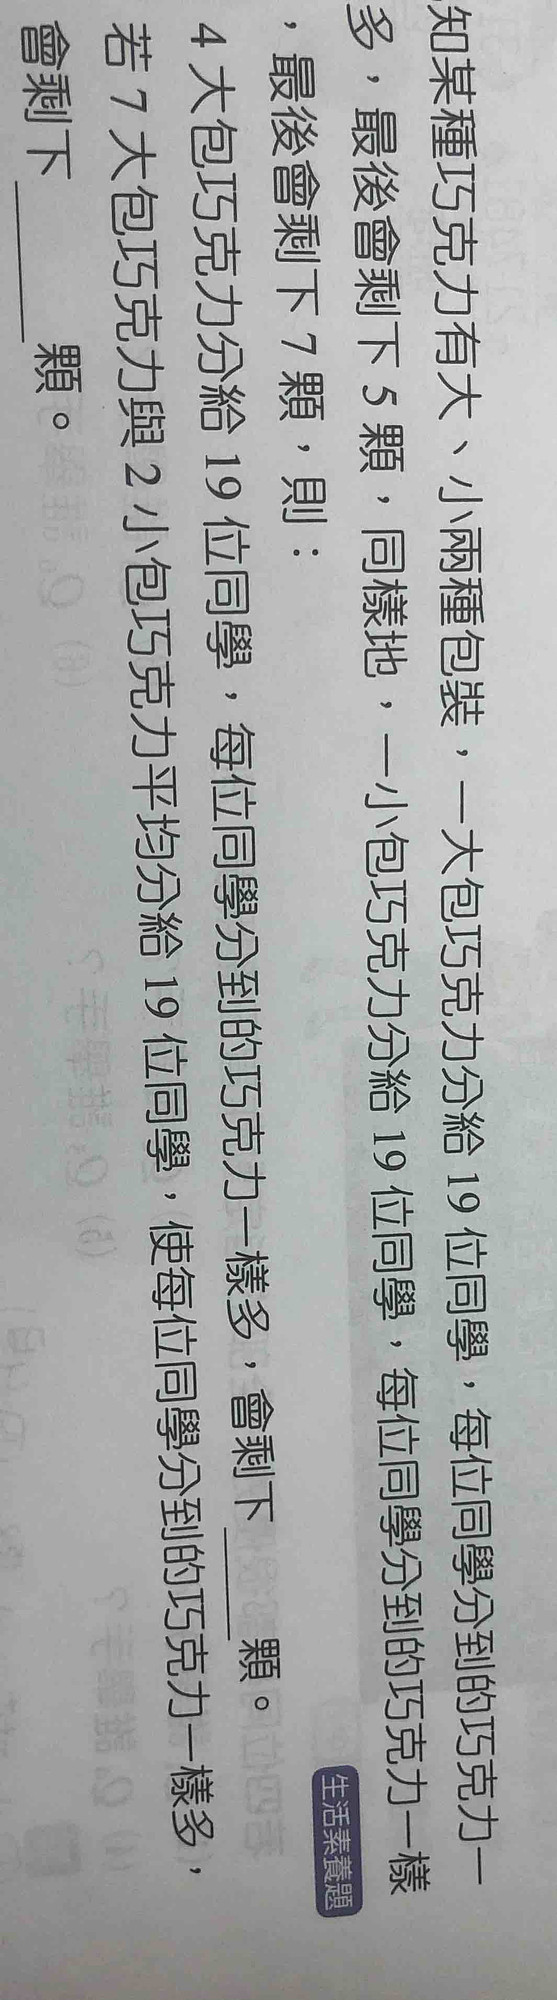 知某種巧克力有大、小兩種包裝，一大包巧克力分給 19 位同學，每位同學分到的巧克力一
多，最後會剩下 5 顆，同樣地，一小包巧克力分給 19 位同學，每位同學分到的巧克力一樣
，最後會剩下 7 顆，則：
生活素養題
4 大包巧克力分給 19 位同學，每位同學分到的巧克力一樣多，會剩下______顆。
若 7 大包巧克力與 2 小包巧克力平均分給 19 位同學，使每位同學分到的巧克力一樣多，
會剩下______顆。